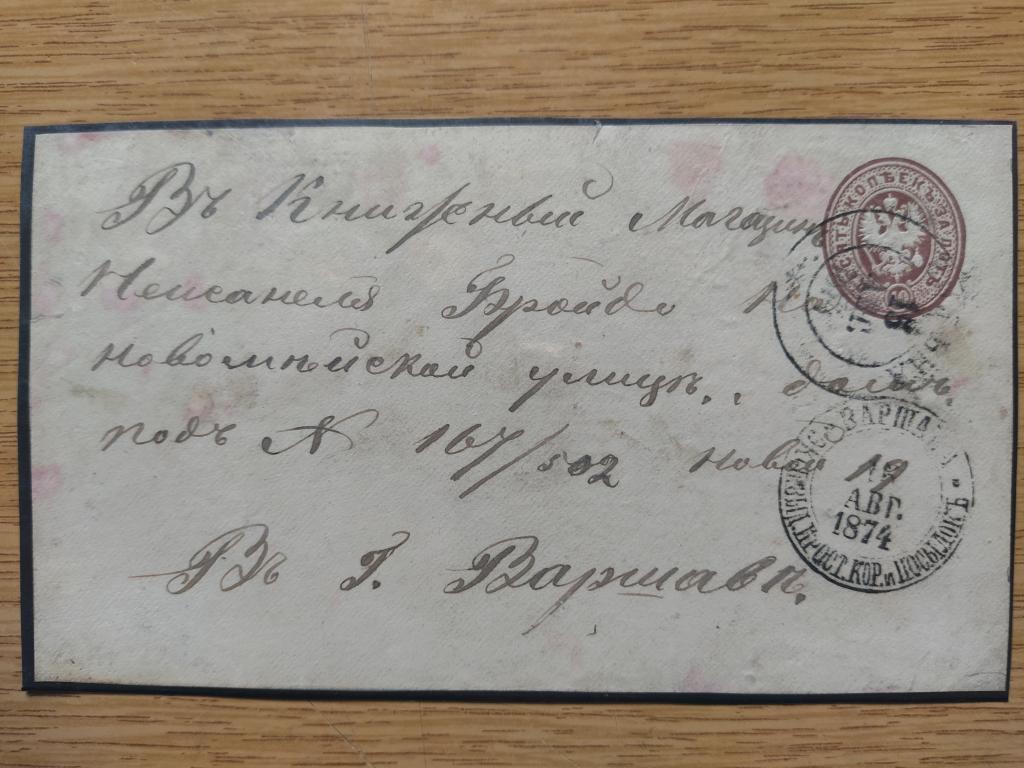 Въ Книжный Магазинъ
Неисанеля Бройдо
новомѣйской улицѣ, домъ
подъ № 167/502 новой 19
Въ Г. Варшавѣ.
КОПѢЕКЪ ЗА ЛОТЪ
ВАРШАВА
19
АВГ.
1874
ПРОСТ. КОР. и ПОСЫЛОКЪ